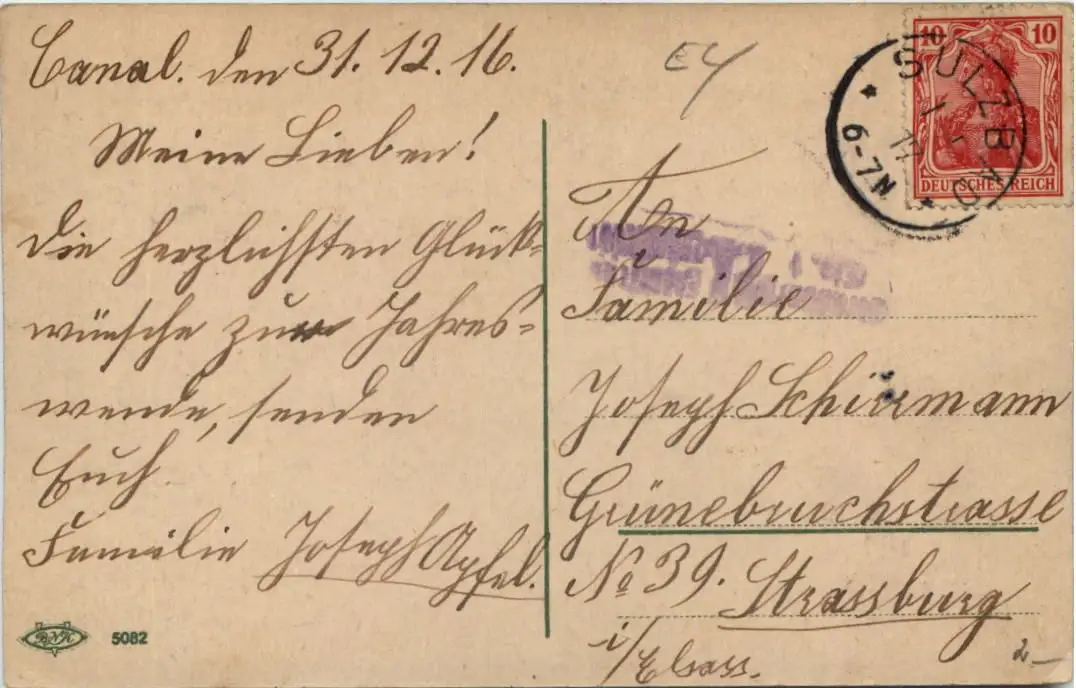 Canal. den 31. 12. 16.
Meine Lieben!
Die herzlichsten Glück-
wünsche zur Jahres-
wende, senden
Euch
Familie Joseph Apfel.
BNK 5082
E4
10 10
DEUTSCHES REICH
SULZB
6-7N
An
Familie
Joseph Schirrmann
Grünebruchstrasse
No 39. Strassburg
i/Elsass.
2-